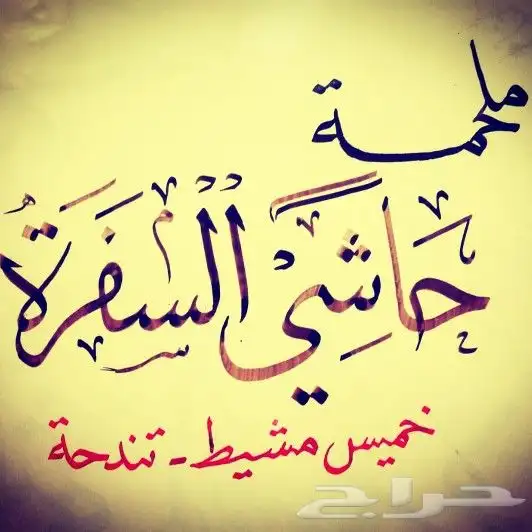 ملحمة
حَاشِي السفرَةُ
خميس مشيط - تندحة
حراج